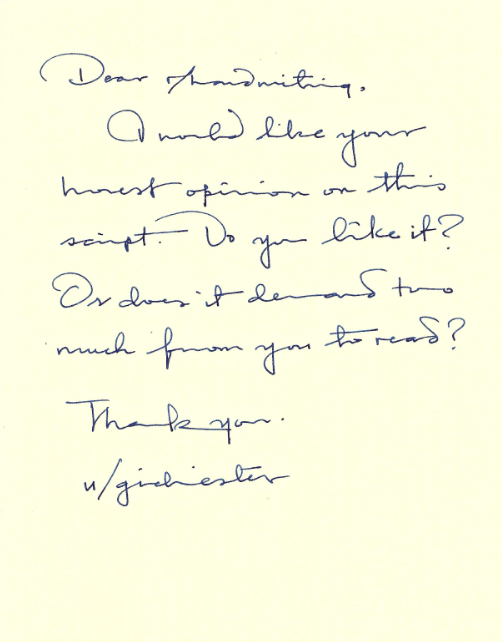 Dear r/handwriting,
I would like your
honest opinion on this
script. Do you like it?
Or does it demand too
much from you to read?
Thank you.
u/gichiester